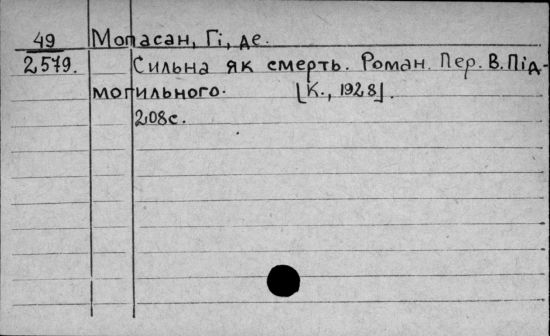 49 Мопасан, Гі, де.
2579. Сильна як смерть. Роман. Пер. В. Під-
могильного. [К., 1928].
208с.